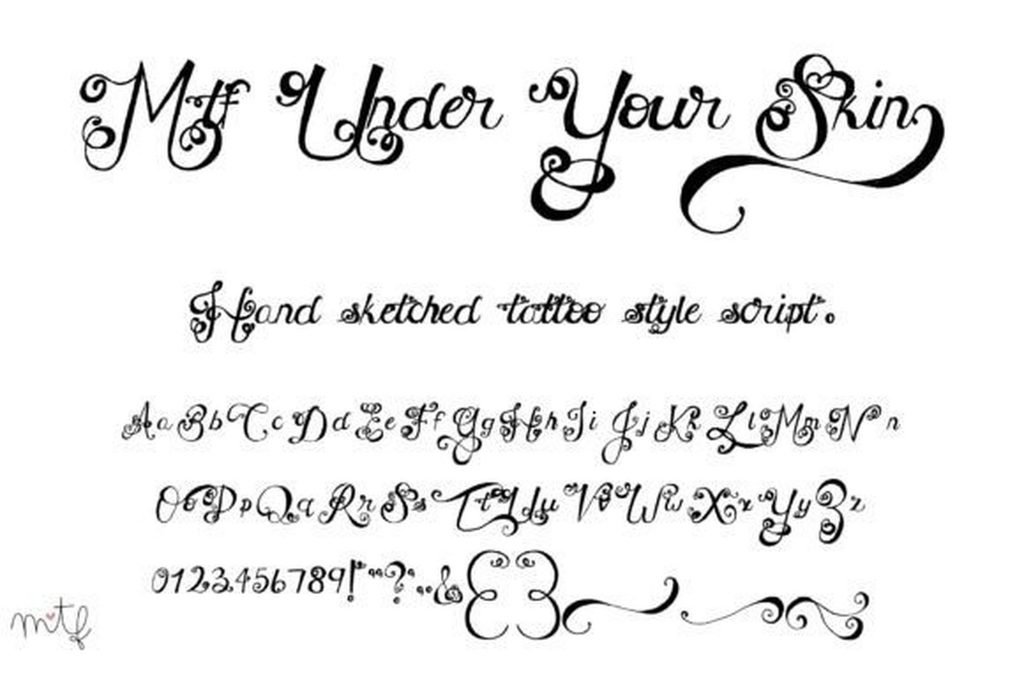 Mtf Under Your Skin
Hand sketched tattoo style script.
Aa Bb Cc Dd Ee Ff Gg Hh Ii Jj Kk Ll Mm Nn
Oo Pp Qq Rr Ss Tt Uu Vv Ww Xx Yy Zz
0123456789!"“?'.,&{}
mtf